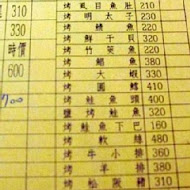 310
330
時價
600
烤虱目魚肚 210
烤明太子 230
烤鯖魚 220
烤鮮干貝 320
烤竹筴魚 220
烤鯧魚 380
烤大蝦 330
烤圓鱈 410
烤鮭魚頭 400
鹽烤鮭魚 320
烤鮭魚下巴 160
烤軟絲 480
烤牛小排 360
烤羊排 380
烤松阪豬 310